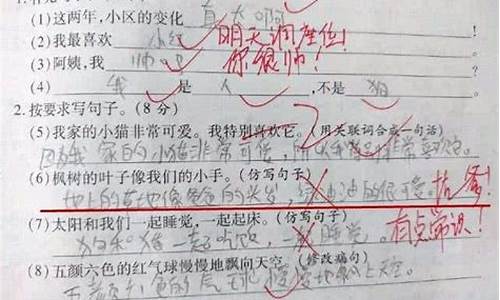 (1)这两年,小区的变化 真大啊
(2)我最喜欢 小红 明天调座位!
(3)阿姨,我 帅吧 你很帅!
(4) 我 是 人 ,不是 狗
2.按要求写句子。(8分)
(5)我家的小猫非常可爱。我特别喜欢它。(用关联词合成一句话)
因为我家的小猫非常可爱,所以我特别非常喜欢它。
(6)枫树的叶子像我们的小手。(仿写句子)
地上的草地像爸爸的头发,绿油油的很可爱。
(7)太阳和我们一起睡觉,一起起床。(仿写句子)
狗和猪一起吃饭,一起睡觉。 有点常识!
(8)五颜六色的红气球慢慢地飘向天空。(修改病句)
五颜六色的气球慢慢地飘上天空。